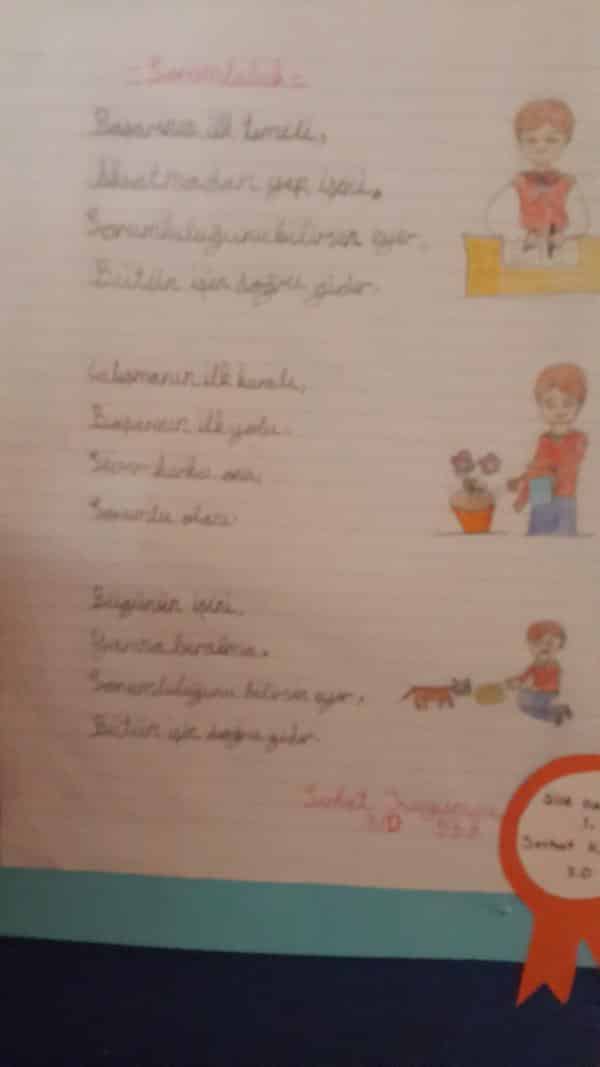 - Sorumluluk -
Başarının ilk temeli,
Aksatmadan yap işini.
Sorumluluğunu bilirsen eğer,
Bütün işin doğru gider.
Çalışmanın ilk kuralı,
Başarının ilk yolu.
ona,
Sorumlu olanı.
Bugünün işini,
Yarına bırakma.
Sorumluluğunu bilirsen eğer,
Bütün işin doğru gider.
3/D
1.
Serhat K
3.D